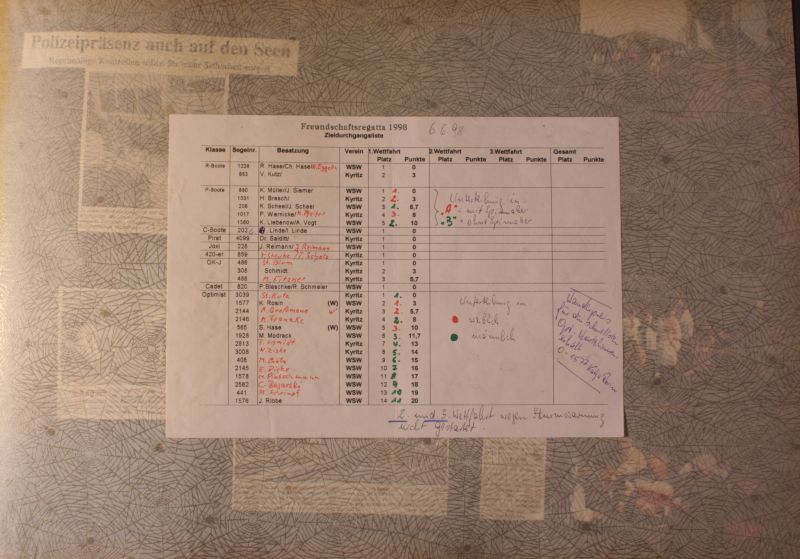 Polizeipräsenz auch auf den Seen
Freundschaftsregatta 1998 6.6.98
Zieldurchgangsliste
Klasse Segelnr. Besatzung Verein 1.Wettfahrt 2.Wettfahrt 3.Wettfahrt Gesamt
Platz Punkte Platz Punkte Platz Punkte Platz Punkte
R-Boote 1228 R. Hase/Ch. Hase WSW 1 0
863 V. Kutz/ Kyritz 2 3
P-Boote 880 K. Müller/J. Siemer WSW 1 1. 0
1331 H. Bresch/ Kyritz 2 2. 3
208 K. Scheel/J. Scheel WSW 3 1. 5,7
1017 P. Wernicke/ Kyritz 4 3. 8
1360 K. Liebenow/A. Vogt WSW 5 2. 10
Unterteilung in:
"A" - mit Spinnaker
"B" - ohne Spinnaker
C-Boote 202 Linde/I. Linde WSW 1 0
Pirat 4099 Dr. Salditt/ Kyritz 1 0
Joxi 226 J. Reimann/J. Reimann WSW 1 0
420-er 859 Kyritz 1 0
OK-J 486 St. Blum Kyritz 1 0
308 Schmidt Kyritz 2 3
488 M. Fitzner Kyritz 3 5,7
Cadet 820 P.Blaschke/R. Schmeier WSW 1 0
Optimist 3039 St. Kutz Kyritz 1 1. 0
1577 K. Rosin (W) WSW 2 1. 3
2144 A. Großmann w Kyritz 3 2. 5,7
2146 M. Francke Kyritz 4 2. 8
565 S. Hase (W) WSW 5 3. 10
1928 M. Modrack WSW 6 3. 11,7
2813 T. Schmidt Kyritz 7 4. 13
3008 Kyritz 8 5. 14
408 WSW 9 6. 15
2145 Kyritz 10 7 16
1578 WSW 11 8 17
2582 Kyritz 12 9 18
441 Kyritz 13 10 19
1576 J. Ribbe WSW 14 11 20
Unterteilung in
weiblich
männlich
Wanderpreis
2. und 3. Wettfahrt wegen Sturmwarnung
nicht gestartet.